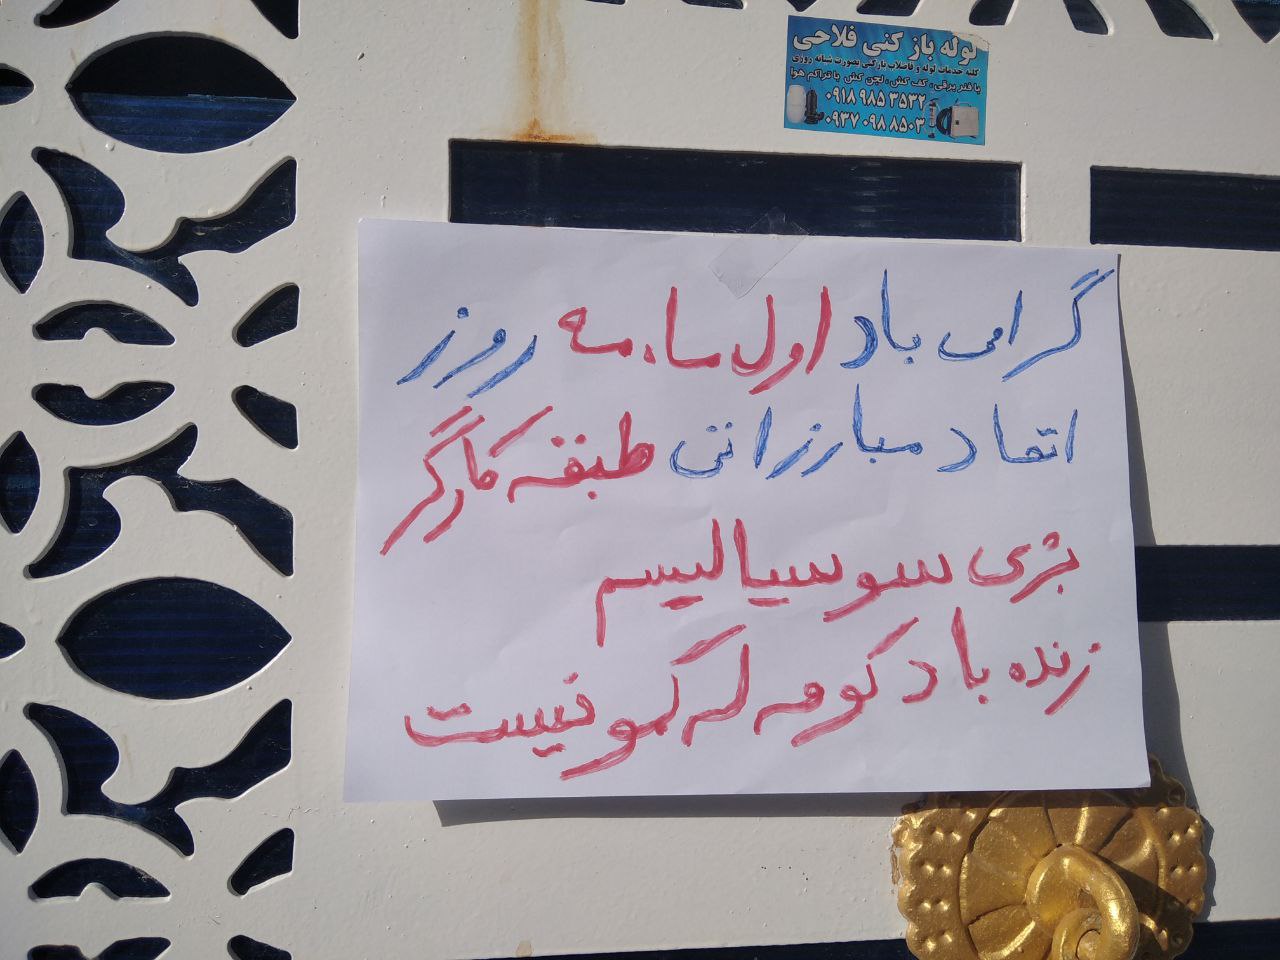 لوله باز کنی فلاحی
کلیه خدمات لوله و فاضلاب بازکنی بصورت شبانه روزی
با فنر برقی ، کف کش ، لجن کش با تراکم هوا
۰۹۱۸ ۹۸۵ ۳۵۳۲
۰۹۳۷ ۰۹۸ ۸۵۰۳
گرامی باد اول ماه مه روز
اتحاد مبارزاتی طبقه کارگر
بژی سوسیالیسم
زنده باد کومه له کمونیست